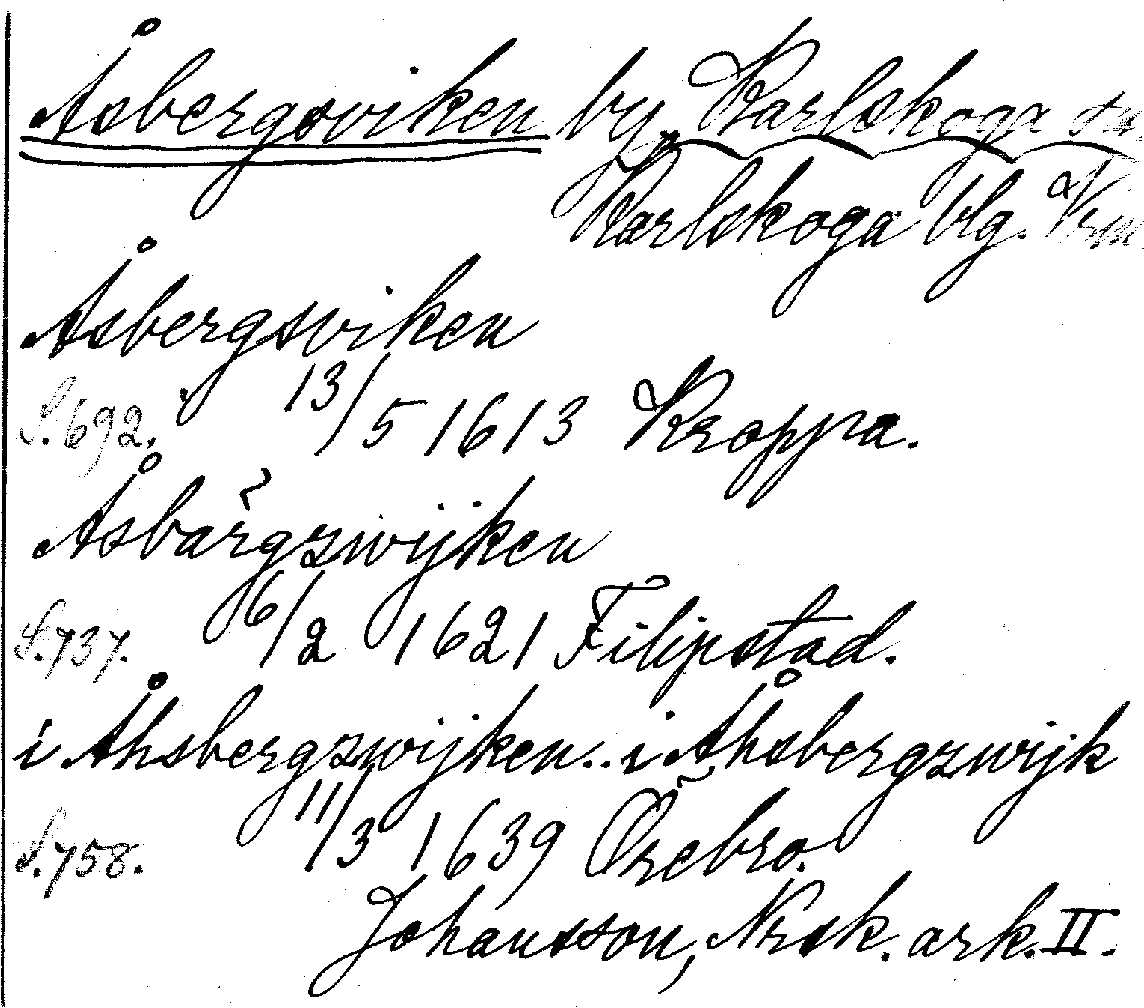 Åsbergsviken by Karlskoga sn
Karlskoga blg. Vrm
Åsbergsviken
S. 692. 13/5 1613 Kroppa.
Åsbärgzwijken
S. 737. 16/2 1621 Filipstad.
i Åhsbergzwijken.. i Åhsbergzwijk
S. 758. 11/3 1639 Örebro.
Johansson, Nrsk. ark. II.